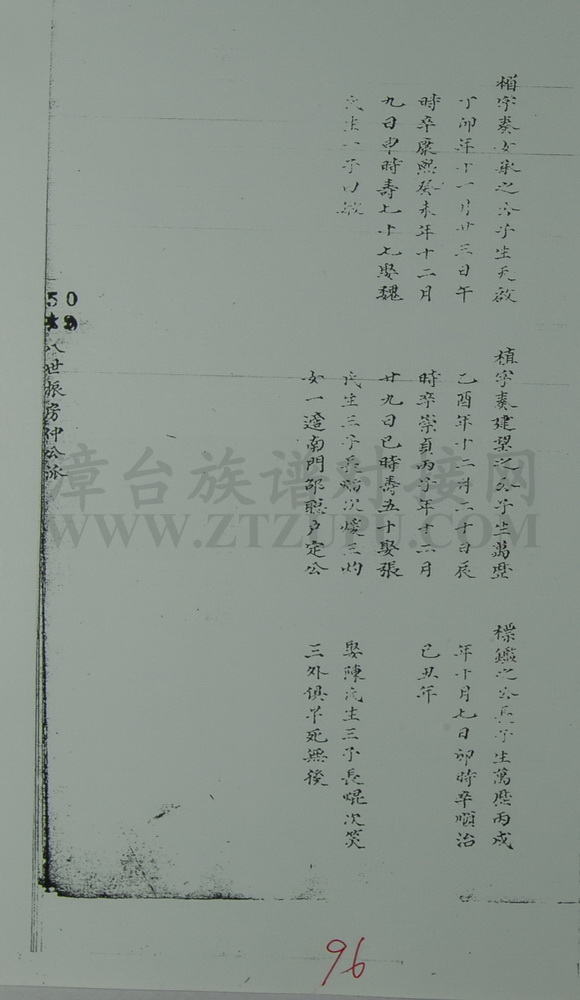 楨字奏建望之公子生萬歷
乙酉年十二月二十日辰
時卒崇貞丙子年十二月
廿九日巳時壽五十娶張
氏生三子長焰次煖三灼
女一適南門邵聰戶定公
標鑑之公長子生萬歷丙戌
年十月七日卯時卒順治
己丑年
娶陳氏生三子長焜次焚
三外俱早死無後
丁卯年十一月廿三日午
時卒康熙癸未年十二月
九日申時壽七十七娶魏
氏生一子
50
世振房仲公派
漳台族谱对接网
WWW.ZTZUPU.COM
96